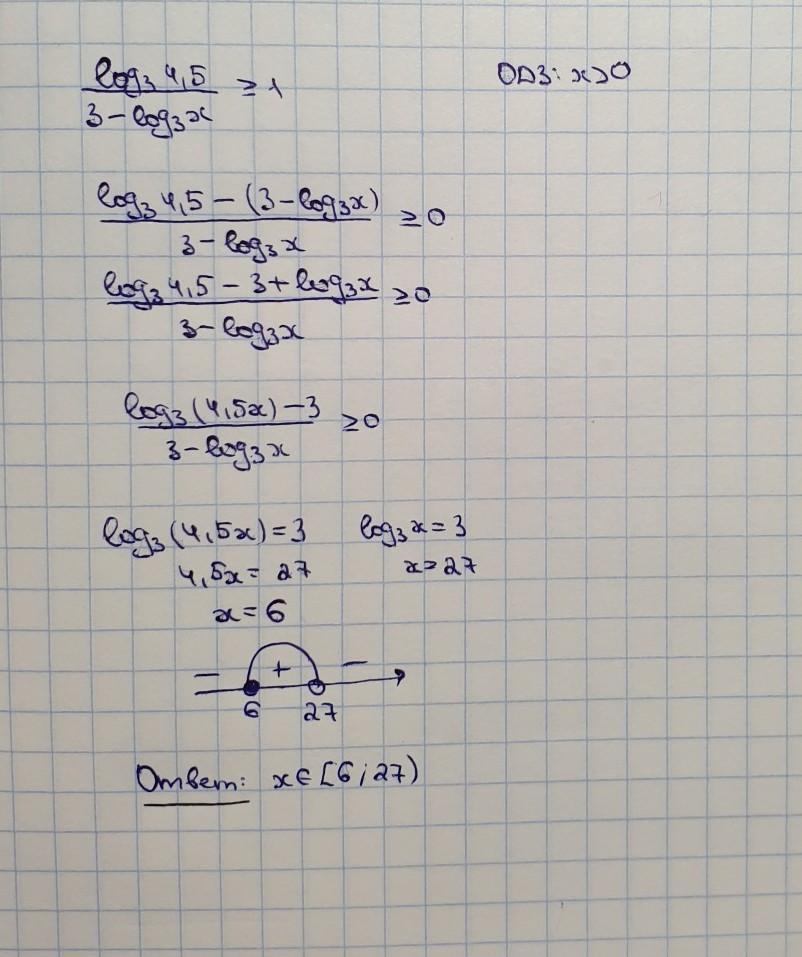 log₃4,5 / (3 − log₃x) ≥ 1    ОДЗ: x>0
(log₃4,5 − (3 − log₃x)) / (3 − log₃x) ≥ 0
(log₃4,5 − 3 + log₃x) / (3 − log₃x) ≥ 0
(log₃(4,5x) − 3) / (3 − log₃x) ≥ 0
log₃(4,5x) = 3    log₃x = 3
4,5x = 27    x = 27
x = 6
− + −
6 27
Ответ: x ∈ [6; 27)